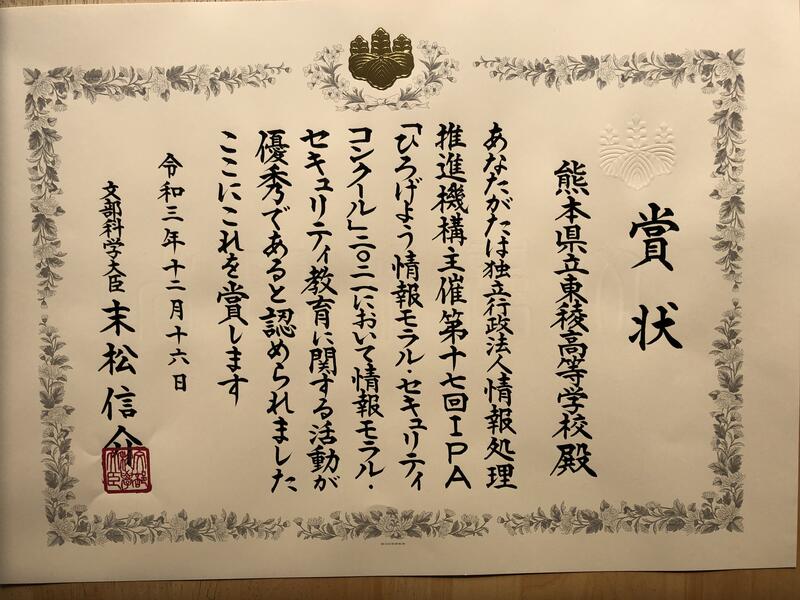 賞状
熊本県立東稜高等学校殿
あなたがたは独立行政法人情報処理
推進機構主催第十七回IPA
「ひろげよう情報モラル・セキュリティ
コンクール」二〇二一において情報モラル・
セキュリティ教育に関する活動が
優秀であると認められました
ここにこれを賞します
令和三年十二月十六日
文部科学大臣 末松信介